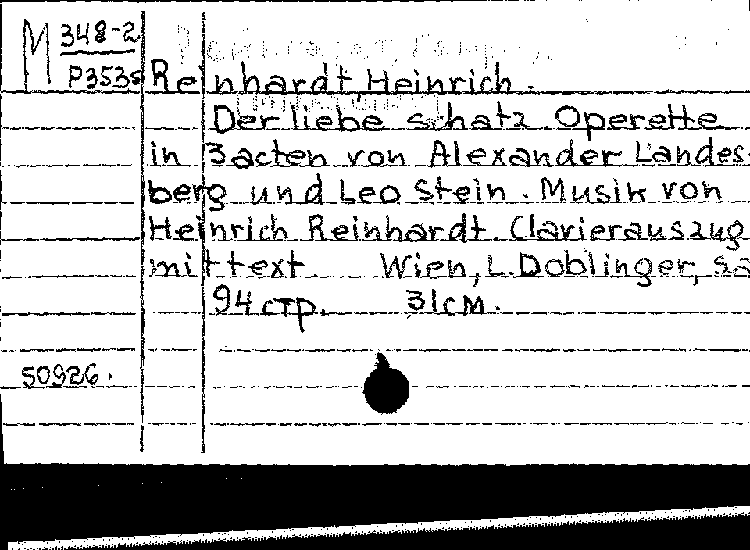 M 348-2
P353s
Reinhardt, Heinrich.
Der liebe schatz Operette
in 3 acten von Alexander Landes-
berg und Leo Stein. Musik von
Heinrich Reinhardt. Clavierauszug
mit text. Wien, L. Doblinger, sa
94 стр. 31 см.
50926.